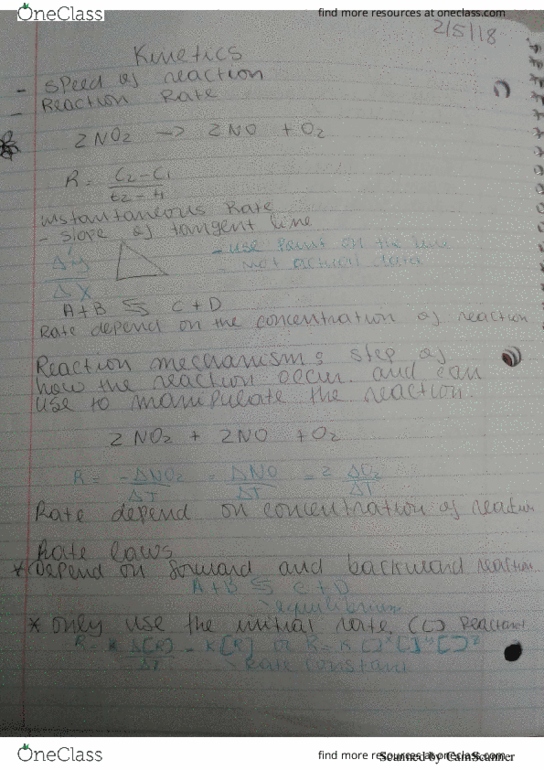 OneClass
find more resources at oneclass.com
2/5/18
Kinetics
- speed of reaction
- Reaction Rate
2NO₂ -> 2NO + O₂
R = C₂-C₁
t₂-t₁
instantaneous Rate
- slope of tangent line
- use point on the line
- not actual data
Δy
ΔX
A+B ⇆ C+D
Rate depend on the concentration of reaction
Reaction mechanism: step of
how the reaction occur and can
use to manipulate the reaction.
2NO₂ + 2NO + O₂
R = -ΔNO₂ = ΔNO = 2 ΔO₂
ΔT ΔT ΔT
Rate depend on concentration of reaction
Rate laws
* Depend on forward and backward reaction
A+B ⇆ C+D
equilibrium
* only use the initial rate. Reactant
rate constant
OneClass
find more resources at oneclass.com
Scanned by CamScanner